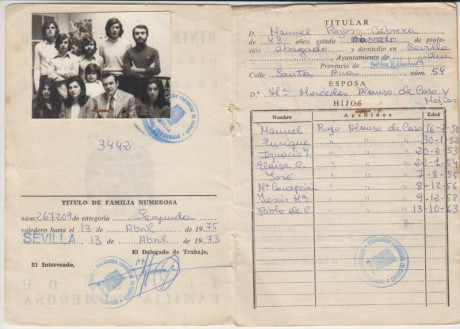 3442
TITULO DE FAMILIA NUMEROSA
núm. 267209 de categoría Segunda
valedera hasta el 13 de Abril de 1975
SEVILLA 13 de Abril de 1973
El Interesado, El Delegado de Trabajo,
TITULAR
D. Manuel Rojas Cabrera
de años, estado Casado de profe-
sión Abogado y domicilio en Sevilla
Ayuntamiento de
Provincia de
Calle Santa Ana núm. 54
ESPOSA
D.ª Mª Mercedes Alonso de Caso y
HIJOS
Nombre Apellidos
Manuel Rojo Alonso de Caso 16-7-50
Enrique " " " 30-1-52
Ignacio " " " 20-2-53
Eloisa " " " 22-1-54
José " " " 7-8-55
Mª Concepción " " " 8-12-56
Jesús Mª " " " 9-12-58
Pablo de C. " " " 13-10-63